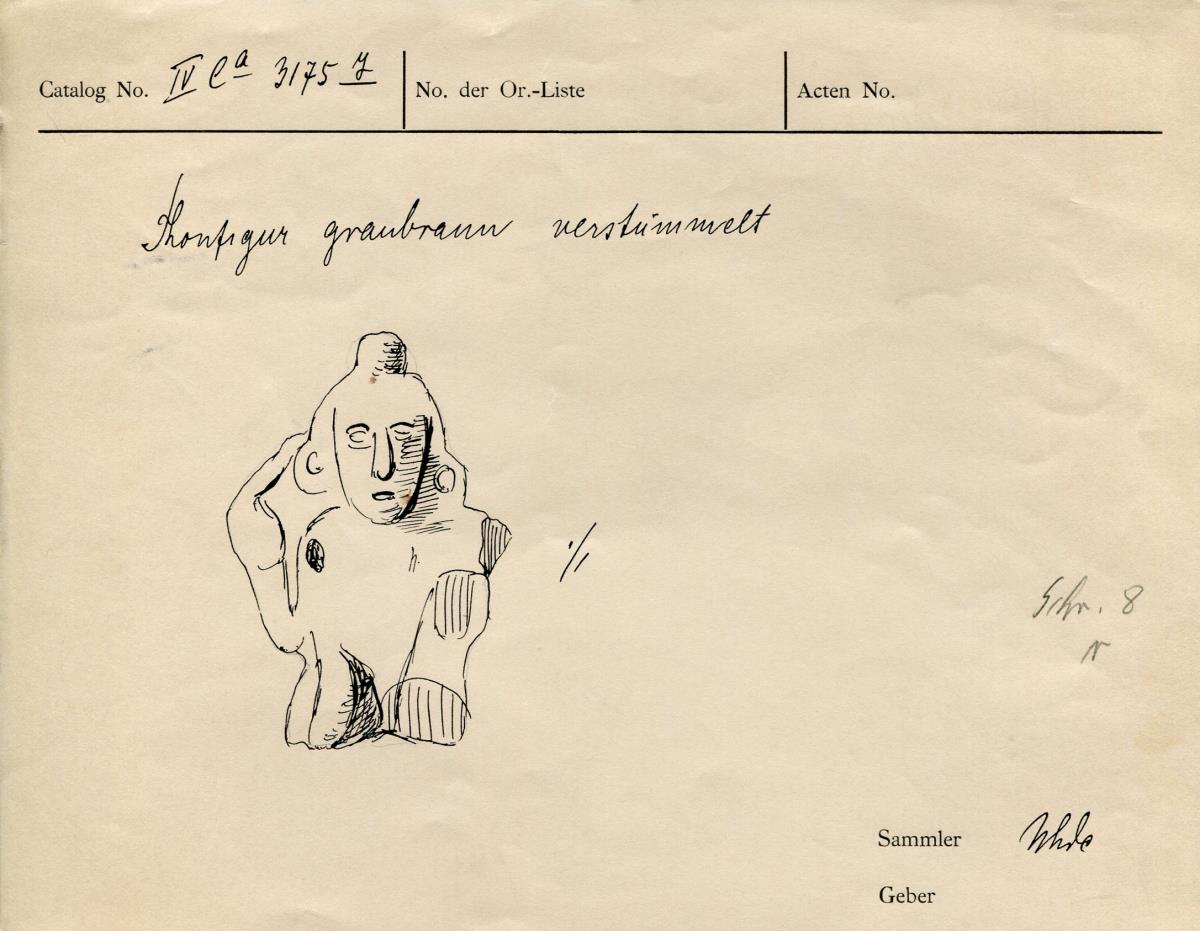 Catalog No. IV Ca 3175 y No. der Or.-Liste Acten No.
Thonfigur graubraun verstümmelt
1/1
h.
Schr. 8
N
Sammler Uhde
Geber